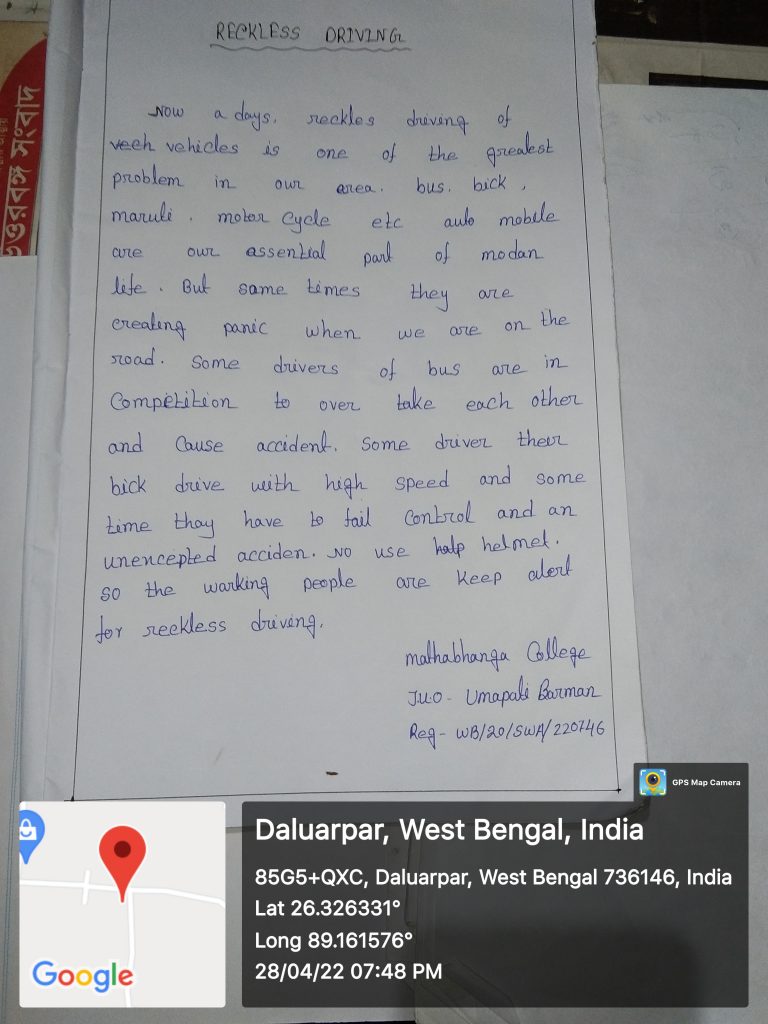 RECKLESS DRIVING
Now a days. reckles driving of
vech vehicles is one of the greatest
problem in our area. bus. bick,
maruli. motor cycle etc auto mobile
are our assential part of modan
life. But same times they are
creating panic when we are on the
road. Some drivers of bus are in
Competition to over take each other
and Cause accident. Some driver their
bick drive with high speed and some
time thay have to fail control and an
unencepted acciden. NO use help helmet.
so the working people are keep alert
for reckless driving.
mathabhanga College
JUO- Umapati Barman
Reg- WB/20/SWA/220746
উত্তরবঙ্গ সংবাদ
GPS Map Camera
Daluarpar, West Bengal, India
85G5+QXC, Daluarpar, West Bengal 736146, India
Lat 26.326331°
Long 89.161576°
28/04/22 07:48 PM
Google